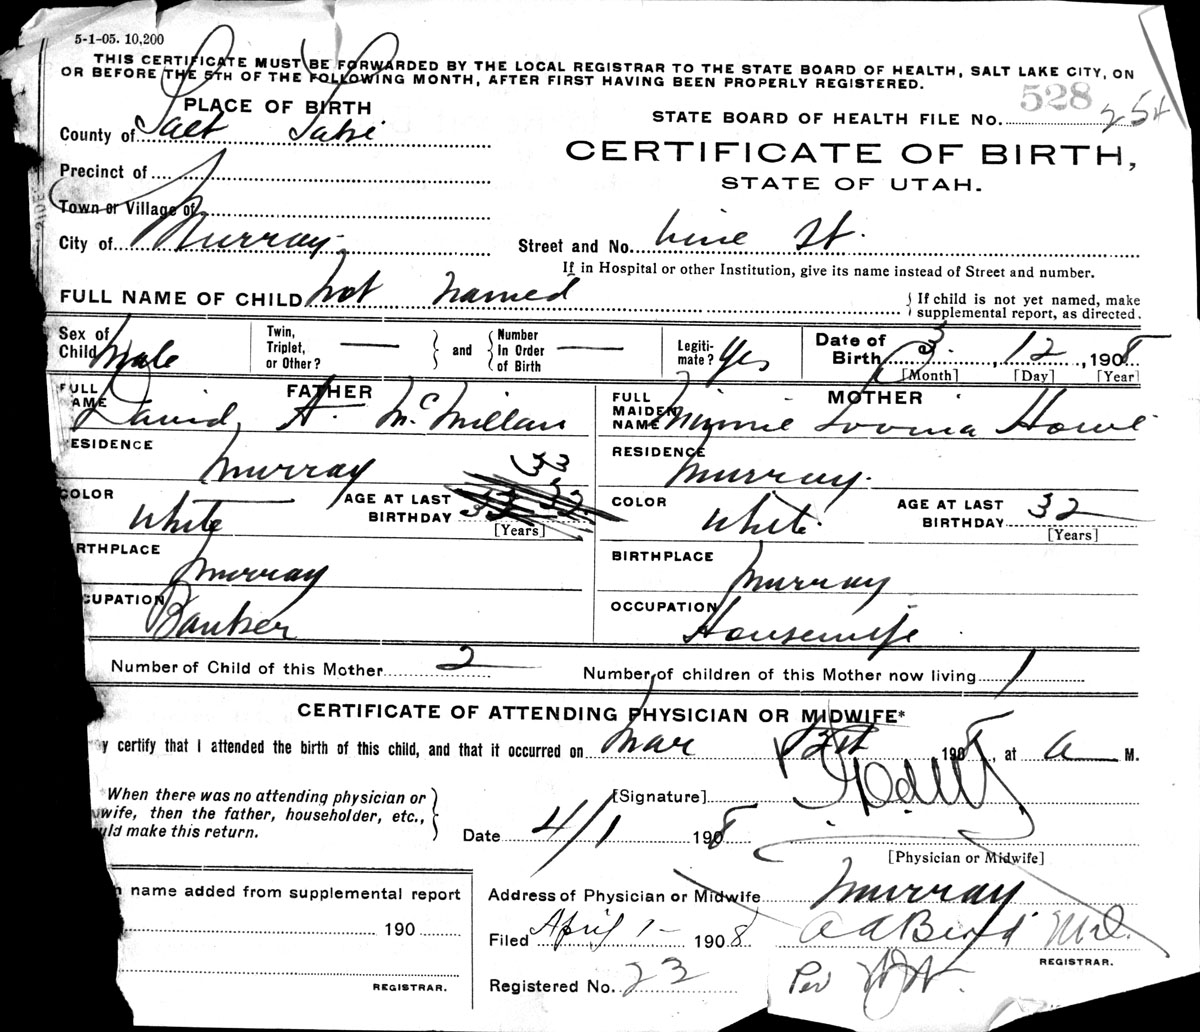 5-1-05. 10,200
THIS CERTIFICATE MUST BE FORWARDED BY THE LOCAL REGISTRAR TO THE STATE BOARD OF HEALTH, SALT LAKE CITY, ON
OR BEFORE THE 5TH OF THE FOLLOWING MONTH, AFTER FIRST HAVING BEEN PROPERLY REGISTERED.
528
PLACE OF BIRTH
STATE BOARD OF HEALTH FILE No. 254
County of Salt Lake
CERTIFICATE OF BIRTH,
STATE OF UTAH.
Precinct of
Town or Village of
City of Murray
Street and No. Vine St.
If in Hospital or other Institution, give its name instead of Street and number.
FULL NAME OF CHILD Not named
If child is not yet named, make
supplemental report, as directed.
Sex of Child Male
Twin, Triplet, or Other? —
and
Number In Order of Birth —
Legiti-mate? Yes
Date of Birth 3, 12, 1908
[Month] [Day] [Year]
FATHER
FULL
AME David A. McMillan
MOTHER
FULL MAIDEN NAME Minnie Howe
ESIDENCE Murray
RESIDENCE Murray.
COLOR White
AGE AT LAST BIRTHDAY 33
[Years]
COLOR White
AGE AT LAST BIRTHDAY 32
[Years]
RTHPLACE Murray
BIRTHPLACE Murray
CUPATION Banker
OCCUPATION Housewife
Number of Child of this Mother 2
Number of children of this Mother now living 1
CERTIFICATE OF ATTENDING PHYSICIAN OR MIDWIFE*
y certify that I attended the birth of this child, and that it occurred on Mar 12th 1908, at a M.
When there was no attending physician or
wife, then the father, householder, etc.,
uld make this return.
[Signature]
Date 4/1 1908
[Physician or Midwife]
n name added from supplemental report
190
REGISTRAR.
Address of Physician or Midwife Murray
Filed April 1- 1908
REGISTRAR.
Registered No. 23
Per